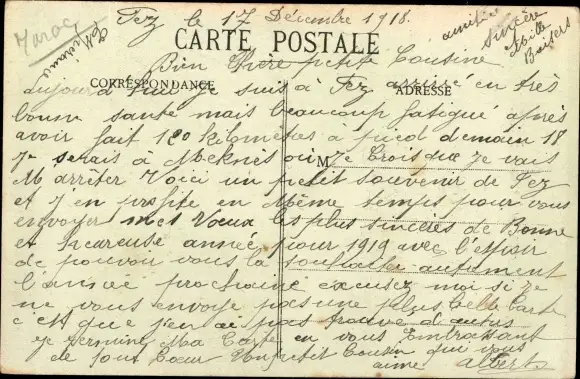 Maroc
Fez le 17 Décembre 1918.
CARTE POSTALE
amitié
Sincère
Mille
Baisers
Bien Chère petite Cousine
CORRESPONDANCE
ADRESSE
Aujourd'hui je suis à Fez arrivé en très
bonne santé mais beaucoup fatigué après
avoir fait 120 kilomètres à pied demain 18
Je serais à Meknès où Je Crois que je vais
M
M arrêter Voici un petit souvenir de Fez
et J en profite en Même temps pour vous
envoyer mes Vœux les plus sincères de Bonne
et heureuse année pour 1919 avec l'espoir
de pouvoir vous la souhaiter autrement
l'année prochaine excusez moi si je
ne vous envoye pas une plus belle Carte
c'est que j'en ai pas trouvé d'autres
Je termine Ma Carte en vous Embrassant
de tout Cœur Un petit Cousin qui vous
aime Albert